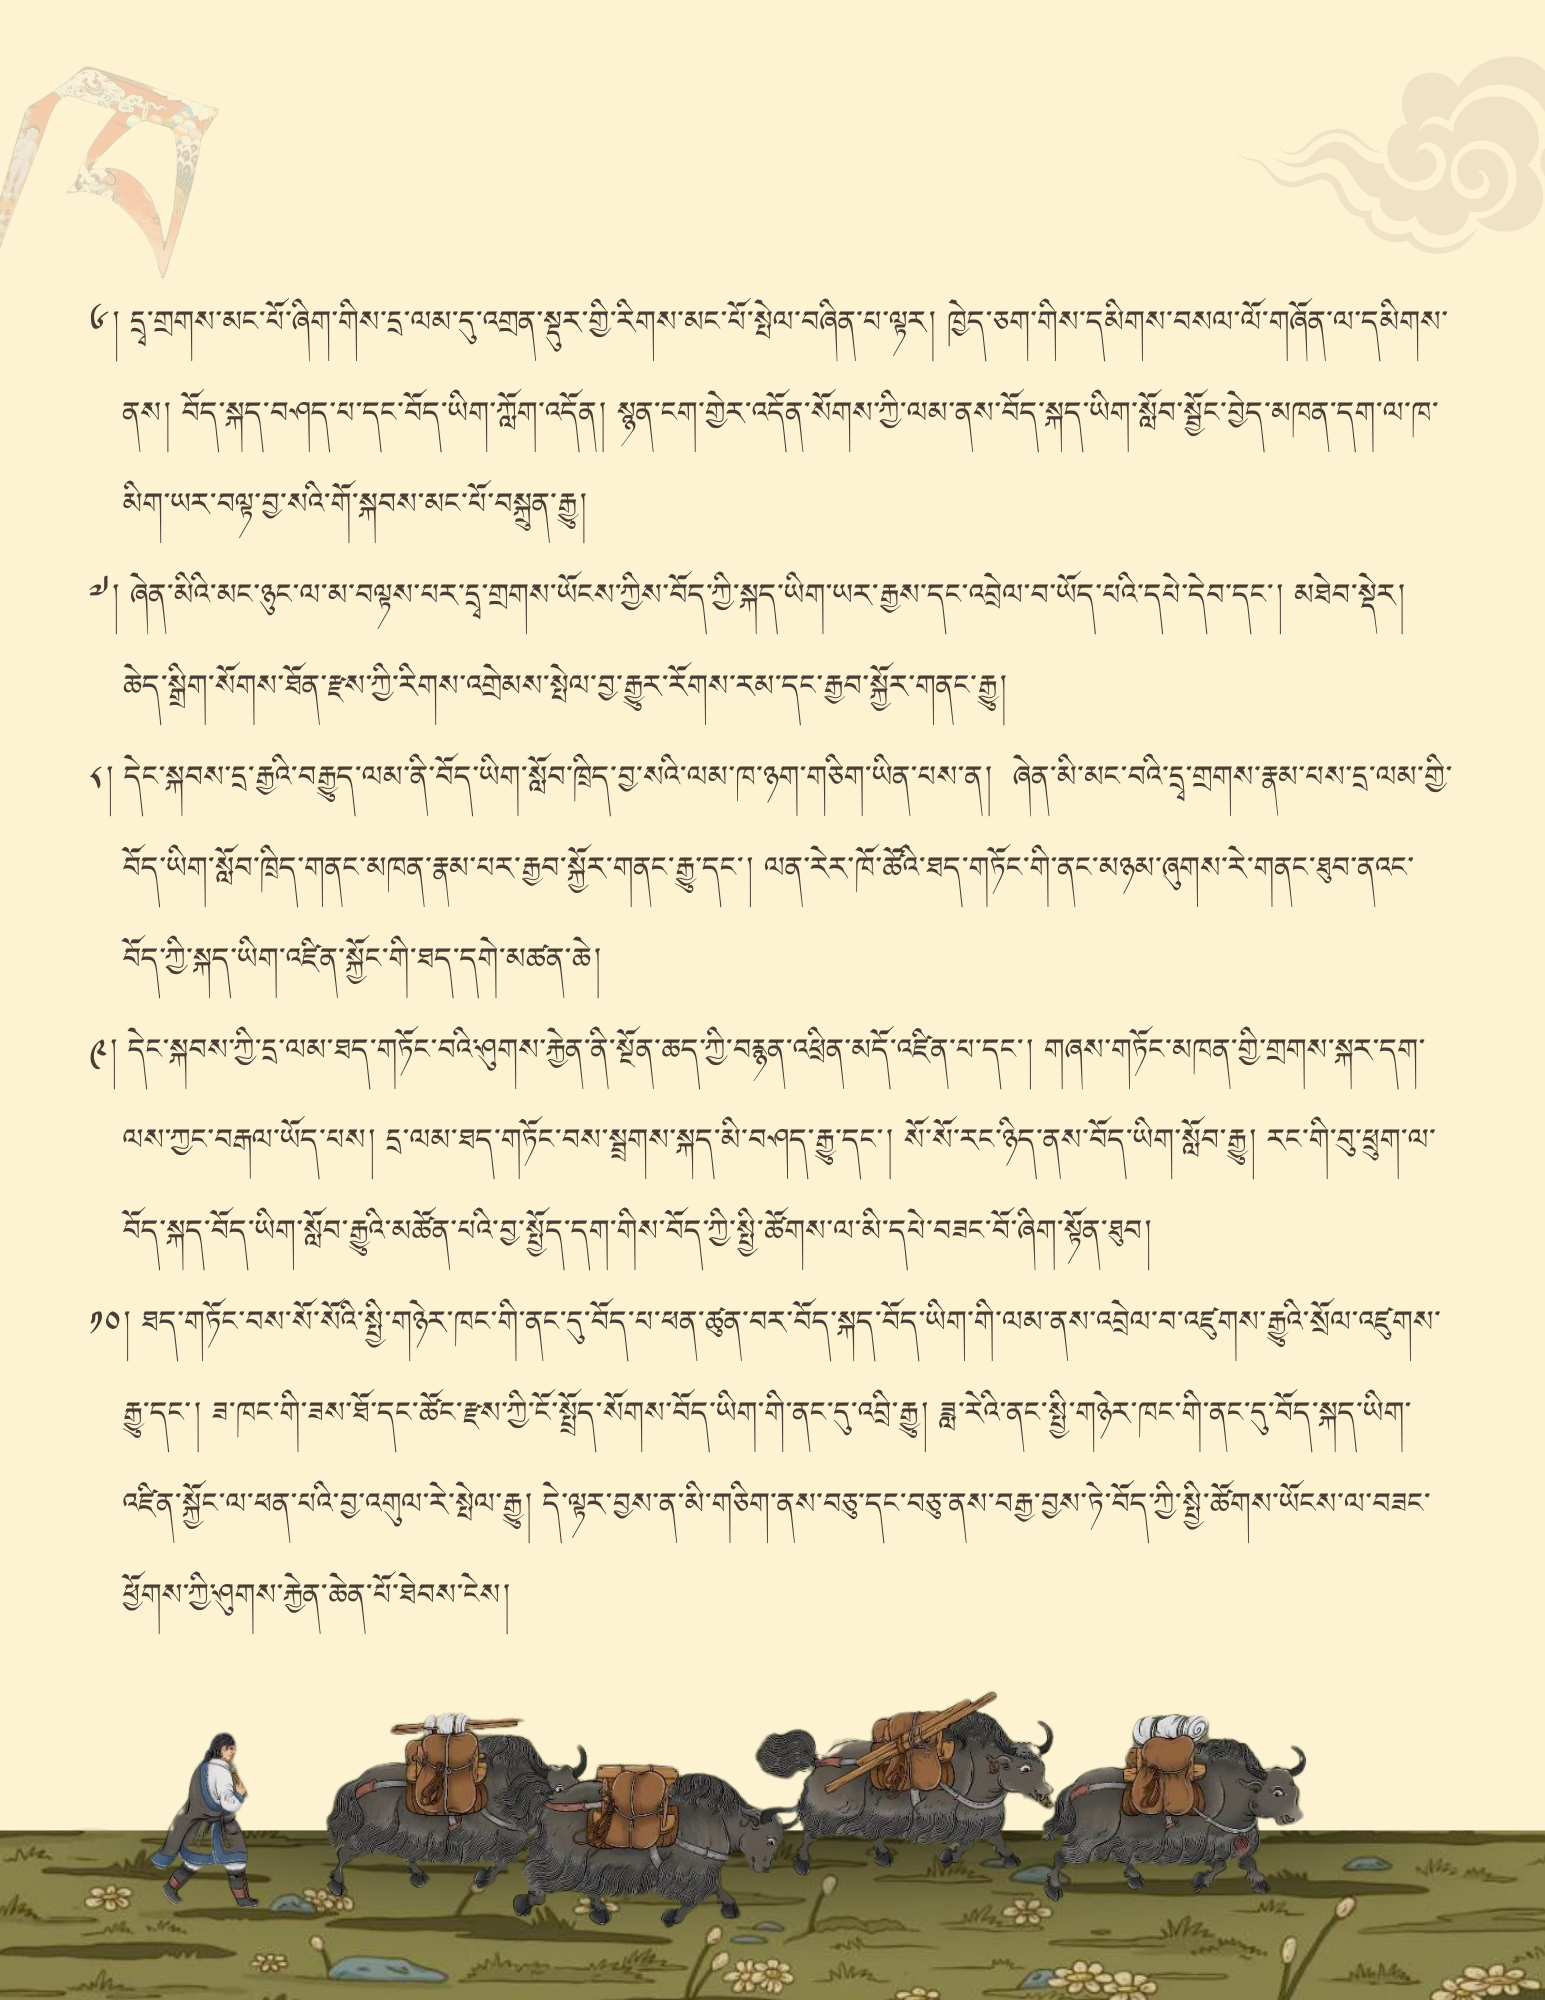 ༦། དྲྭ་གྲགས་མང་པོ་ཞིག་གིས་དྲ་ལམ་དུ་འགྲན་སྡུར་གྱི་རིགས་མང་པོ་སྤེལ་བཞིན་པ་ལྟར། ཁྱེད་ཅག་གིས་དམིགས་བསལ་ལོ་གཞོན་ལ་དམིགས་
ནས། བོད་སྐད་བཤད་པ་དང་བོད་ཡིག་ཀློག་འདོན། སྙན་ངག་གྱེར་འདོན་སོགས་ཀྱི་ལམ་ནས་བོད་སྐད་ཡིག་སློབ་སྦྱོང་བྱེད་མཁན་དག་ལ་ཁ་
མིག་ཡར་བལྟ་བྱ་སའི་གོ་སྐབས་མང་པོ་བསྐྲུན་རྒྱུ།
༧། ཞེན་མིའི་མང་ཉུང་ལ་མ་བལྟས་པར་དྲྭ་གྲགས་ཡོངས་ཀྱིས་བོད་ཀྱི་སྐད་ཡིག་ཡར་རྒྱས་དང་འབྲེལ་བ་ཡོད་པའི་དཔེ་དེབ་དང་། མཐེབ་སྡེར།
ཆེད་སྒྲིག་སོགས་ཐོན་རྫས་ཀྱི་རིགས་འགྲེམས་སྤེལ་བྱ་རྒྱུར་རོགས་རམ་དང་རྒྱབ་སྐྱོར་གནང་རྒྱུ།
༨། དེང་སྐབས་དྲ་རྒྱའི་བརྒྱུད་ལམ་ནི་བོད་ཡིག་སློབ་ཁྲིད་བྱ་སའི་ལམ་ཁ་ཉག་གཅིག་ཡིན་པས་ན།  ཞེན་མི་མང་བའི་དྲྭ་གྲགས་རྣམ་པས་དྲ་ལམ་གྱི་
བོད་ཡིག་སློབ་ཁྲིད་གནང་མཁན་རྣམ་པར་རྒྱབ་སྐྱོར་གནང་རྒྱུ་དང་། ལན་རེར་ཁོ་ཚོའི་ཐད་གཏོང་གི་ནང་མཉམ་ཞུགས་རེ་གནང་ཐུབ་ནའང་
བོད་ཀྱི་སྐད་ཡིག་འཛིན་སྐྱོང་གི་ཐད་དགེ་མཚན་ཆེ།
༩། དེང་སྐབས་ཀྱི་དྲ་ལམ་ཐད་གཏོང་བའི་ཤུགས་རྐྱེན་ནི་སྔོན་ཆད་ཀྱི་བརྙན་འཕྲིན་མདོ་འཛིན་པ་དང་། གཞས་གཏོང་མཁན་གྱི་གྲགས་སྐར་དག་
ལས་ཀྱང་བརྒལ་ཡོད་པས། དྲ་ལམ་ཐད་གཏོང་བས་སྦྲགས་སྐད་མི་བཤད་རྒྱུ་དང་། སོ་སོ་རང་ཉིད་ནས་བོད་ཡིག་སློབ་རྒྱུ། རང་གི་བུ་ཕྲུག་ལ་
བོད་སྐད་བོད་ཡིག་སློབ་རྒྱུའི་མཚོན་པའི་བྱ་སྤྱོད་དག་གིས་བོད་ཀྱི་སྤྱི་ཚོགས་ལ་མི་དཔེ་བཟང་བོ་ཞིག་སྟོན་ཐུབ།
༡༠། ཐད་གཏོང་བས་སོ་སོའི་སྤྱི་གཉེར་ཁང་གི་ནང་དུ་བོད་པ་ཕན་ཚུན་བར་བོད་སྐད་བོད་ཡིག་གི་ལམ་ནས་འབྲེལ་བ་འཛུགས་རྒྱུའི་སྲོལ་འཛུགས་
རྒྱུ་དང་། ཟ་ཁང་གི་ཟས་ཐོ་དང་ཚོང་རྫས་ཀྱི་ངོ་སྤྲོད་སོགས་བོད་ཡིག་གི་ནང་དུ་འབྲི་རྒྱུ། ཟླ་རེའི་ནང་སྤྱི་གཉེར་ཁང་གི་ནང་དུ་བོད་སྐད་ཡིག་
འཛིན་སྐྱོང་ལ་ཕན་པའི་བྱ་འགུལ་རེ་སྤེལ་རྒྱུ། དེ་ལྟར་བྱས་ན་མི་གཅིག་ནས་བཅུ་དང་བཅུ་ནས་བརྒྱ་བྱས་ཏེ་བོད་ཀྱི་སྤྱི་ཚོགས་ཡོངས་ལ་བཟང་
ཕྱོགས་ཀྱི་ཤུགས་རྐྱེན་ཆེན་པོ་ཐེབས་ངེས།